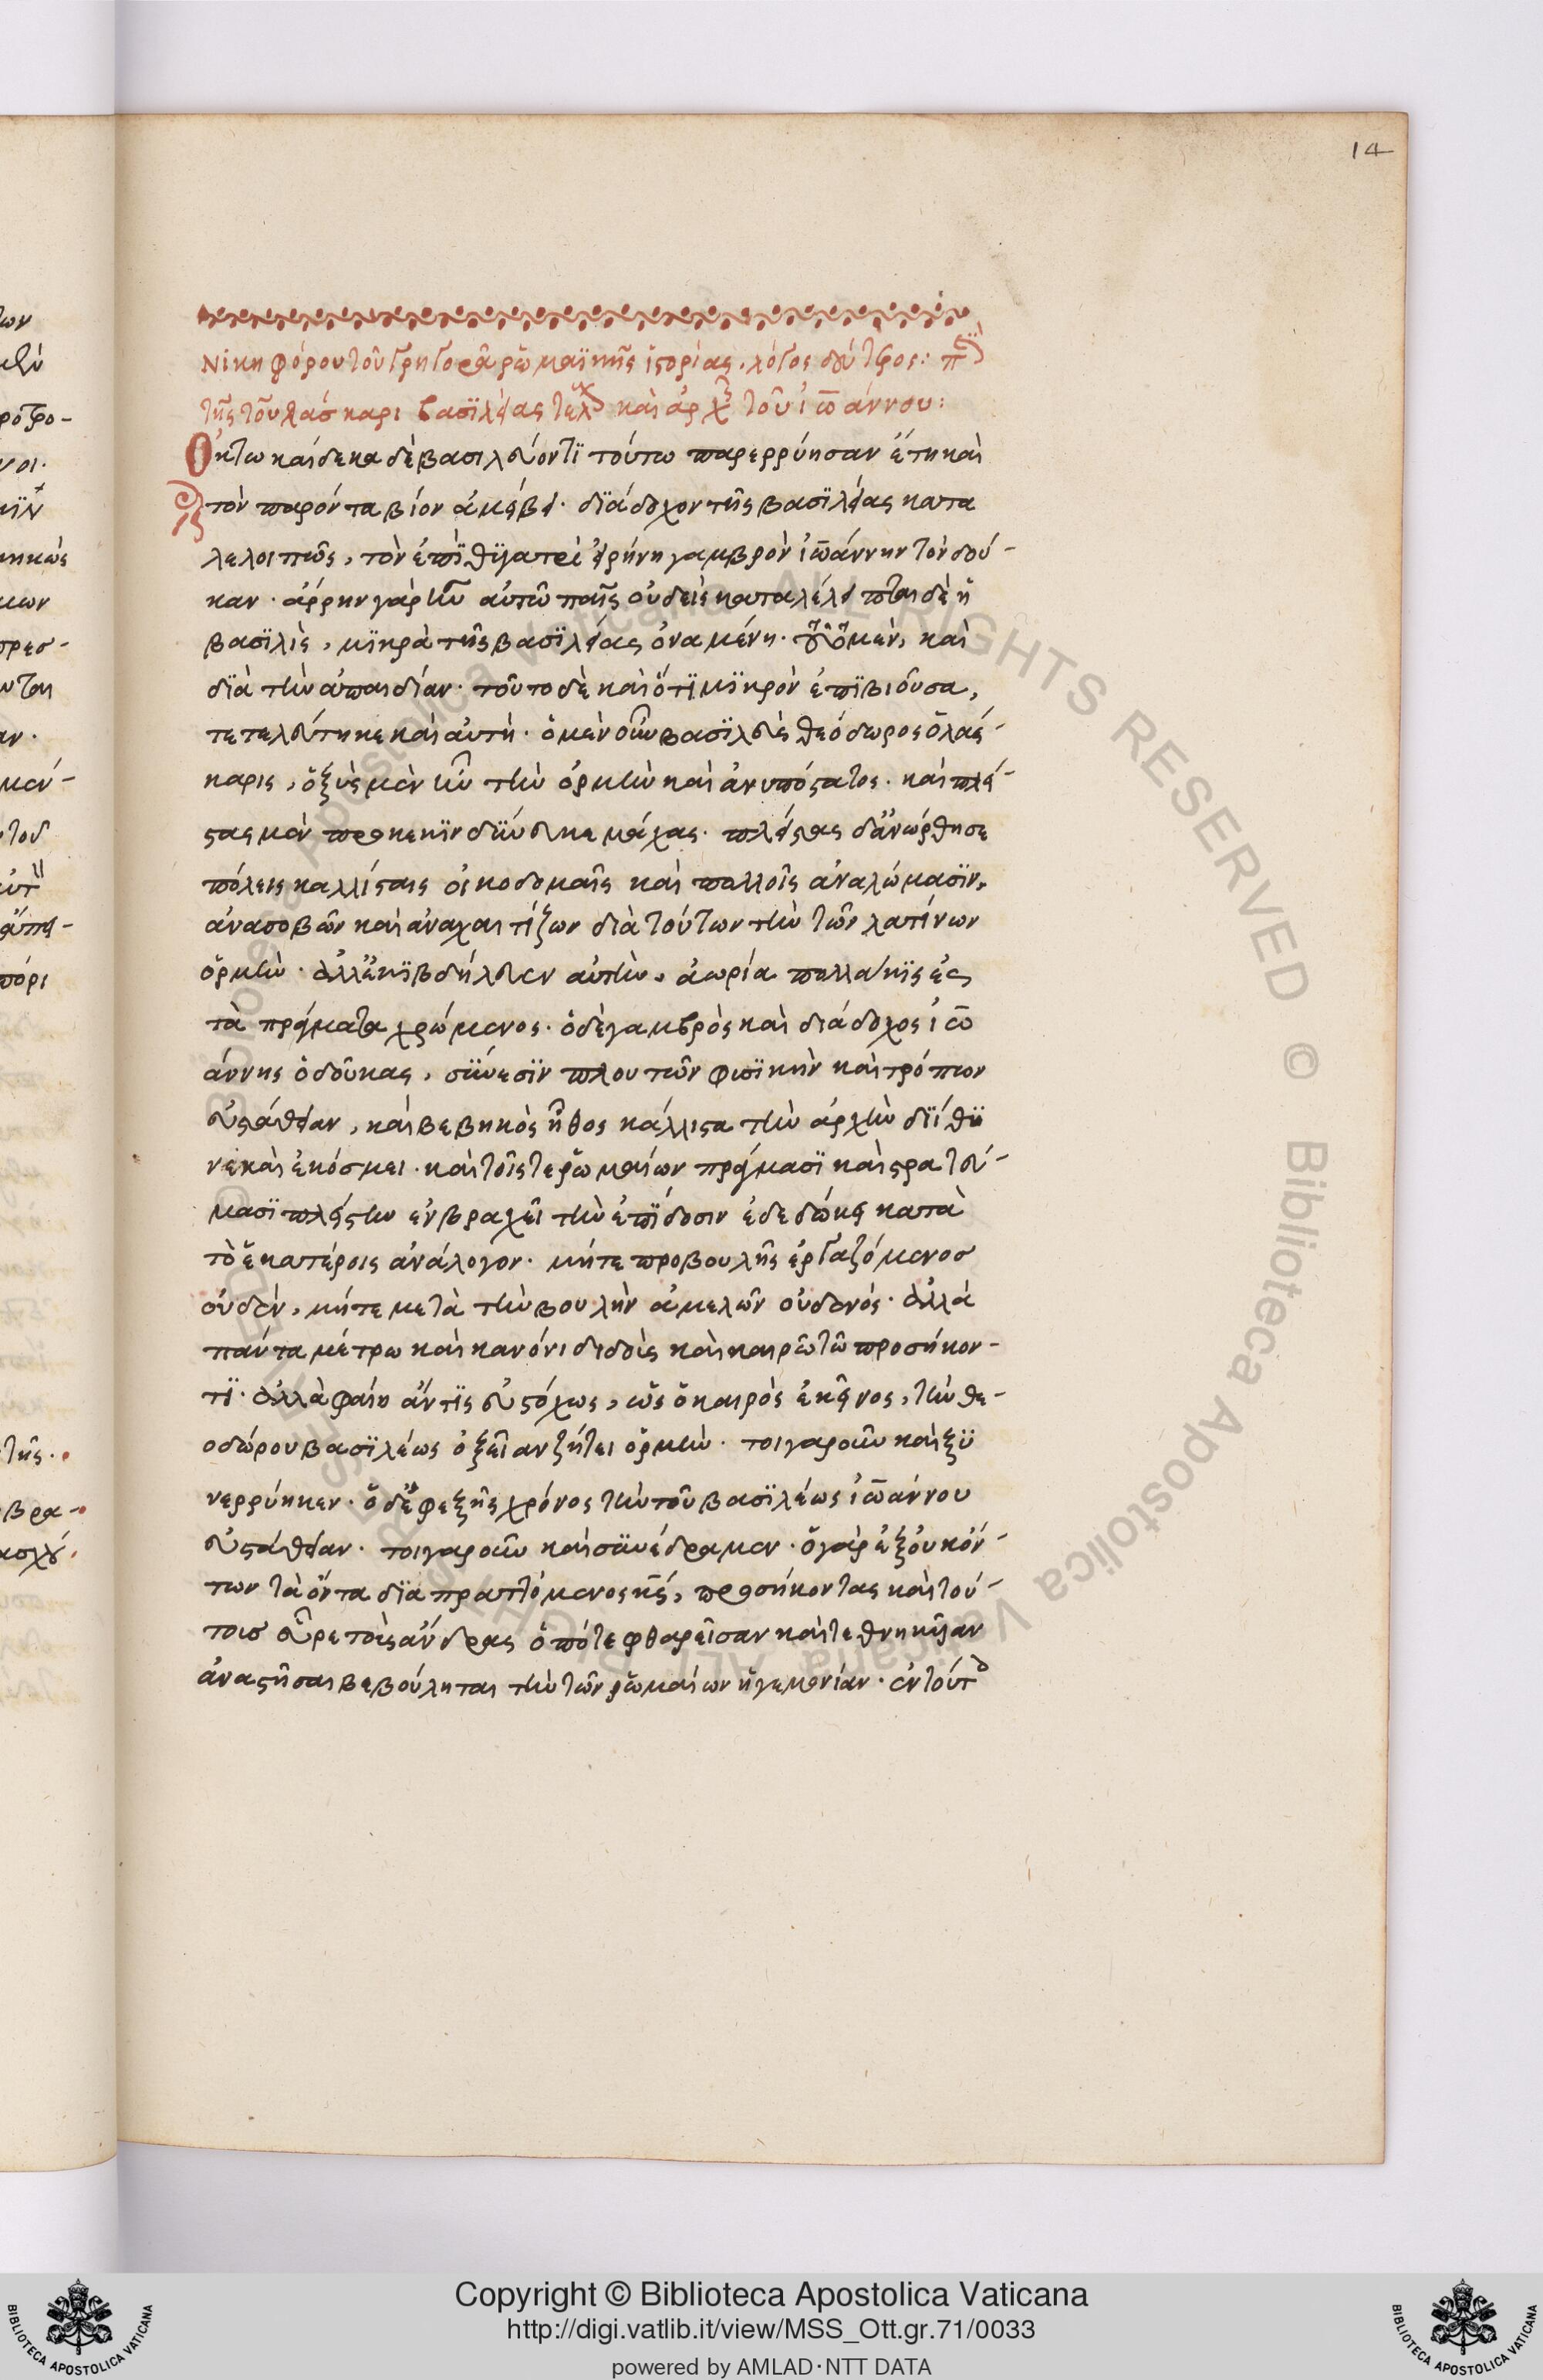 14
Νικηφόρου τοῦ Γρηγορᾶ ῥωμαϊκῆς ἱστορίας. λόγος δεύτερος: π
τῆς τοῦ λάσκαρι βασιλείας τελ καὶ ἀρχ τοῦ ἰωάννου:
Ὀκτωκαίδεκα δὲ βασιλεύοντι τούτω παρερρύησαν ἔτη καὶ
τὸν παρόντα βίον ἀμείβει. διάδοχον τῆς βασιλείας κατα
λελοιπῶς, τὸν ἐπὶ θυγατρὶ εἰρήνη γαμβρὸν ἰωάννην τὸν δού-
καν. ἄρρην γὰρ ἦν αὐτῶ παῖς οὐδεὶς καταλέλειπται δὲ ἡ
βασιλὶς, μικρὰ τῆς βασιλείας ὀναμένη. τοῦτο μὲν, καὶ
διὰ τὴν ἀπαιδίαν. τοῦτο δὲ καὶ ὅτι μικρὸν ἐπιβιοῦσα,
τετελεύτηκε καὶ αὐτή. ὁ μὲν οὖν βασιλεὺς θεόδωρος ὁ λάσ-
καρις, ὀξὺς μὲν ἦν τὴν ὁρμὴν καὶ ἀνυπόστατος. καὶ πλεί-
στας μὲν προκεκινδύνευκε μάχας. πλείστας δ' ἀνώρθησε
πόλεις καλλίσταις οἰκοδομαῖς καὶ πολλοῖς ἀναλώμασιν,
ἀνασοβῶν καὶ ἀναχαιτίζων διὰ τούτων τὴν τῶν λατίνων
ὁρμὴν. ἀλλ' ἐκιβδήλευεν αὐτὴν, ἀωρία πολλάκις ἐς
τὰ πράγματα χρώμενος. ὁ δὲ γαμβρὸς καὶ διάδοχος ἰω
άννης ὁ δούκας, σύνεσιν πλουτῶν φυσικὴν καὶ τρόπων
εὐστάθειαν, καὶ βεβηκὸς ἦθος κάλλιστα τὴν ἀρχὴν διίθυ
νε καὶ ἐκόσμει. καὶ τοῖς τε ῥωμαίων πράγμασι καὶ στρατεύ-
μασι πλείστην ἐν βραχεῖ τὴν ἐπίδοσιν ἐδεδώκει κατὰ
τὸ ἑκατέροις ἀνάλογον. μήτε προβουλῆς ἐργαζόμενος
οὐδὲν, μήτε μετὰ τὴν βουλὴν ἀμελῶν οὐδενός. ἀλλὰ
πάντα μέτρω καὶ κανόνι διδοὺς καὶ καιρῶ τῶ προσήκον-
τι. ἀλλὰ φαίη ἄν τις εὐστόχως, ὡς ὁ καιρὸς ἐκεῖνος, τὴν θε-
οδώρου βασιλέως ὀξεῖαν ζήτει ὁρμὴν. τοιγαροῦν καὶ ξυ
νερρύηκεν. ὁ δ' ἐφεξῆς χρόνος τὴν τοῦ βασιλέως ἰωάννου
εὐστάθειαν. τοιγαροῦν καὶ συνέδραμεν. ὁ γὰρ ἐξ οὐκ ὄν-
των τὰ ὄντα διαπραττόμενος κς, προσήκοντας καὶ τού-
τοις εὗρε τοὺς ἄνδρας ὁπότε φθαρεῖσαν καὶ τεθνηκυῖαν
ἀναστῆσαι βεβούληται τὴν τῶν ῥωμαίων ἡγεμονίαν. ἐν τούτ
Copyright © Biblioteca Apostolica Vaticana
http://digi.vatlib.it/view/MSS_Ott.gr.71/0033
powered by AMLAD·NTT DATA
BIBLIOTECA APOSTOLICA VATICANA
BIBLIOTECA APOSTOLICA VATICANA